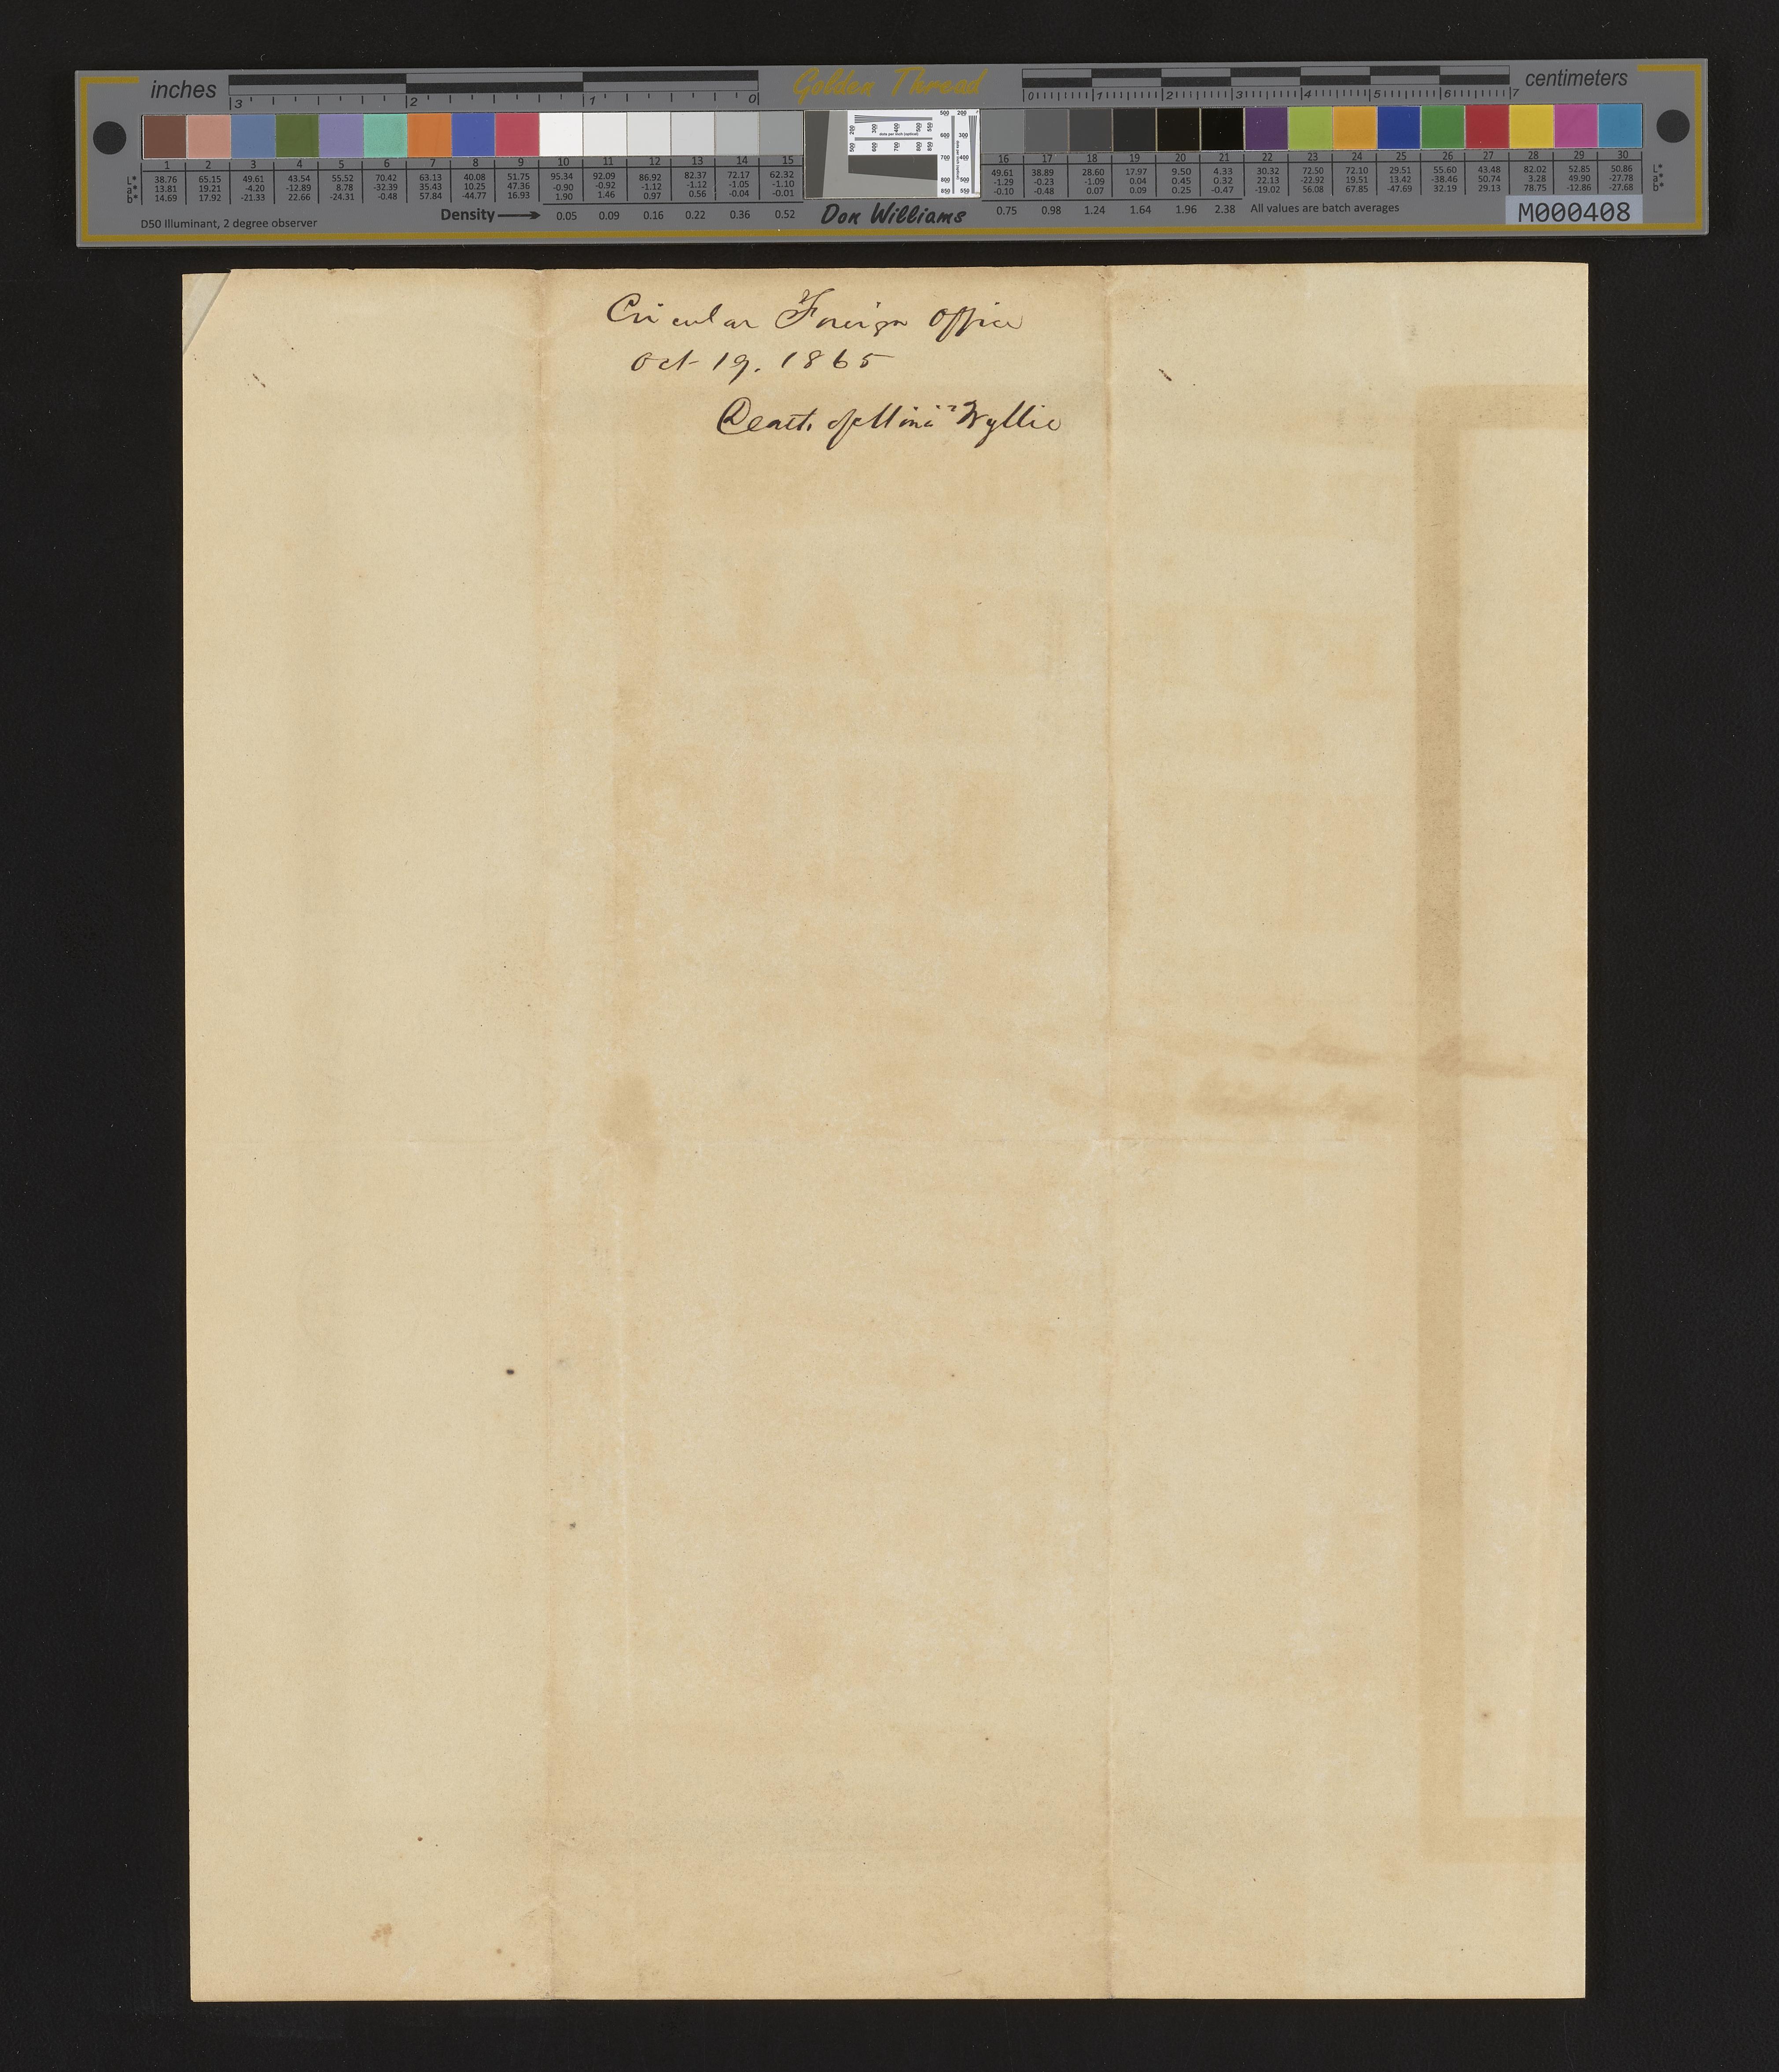 inches 3 2 1 0 Golden Thread 0 1 2 3 4 5 6 7 centimeters
1 2 3 4 5 6 7 8 9 10 11 12 13 14 15 16 17 18 19 20 21 22 23 24 25 26 27 28 29 30
L* 38.76 65.15 49.61 43.54 55.52 70.42 63.13 40.08 51.75 95.34 92.09 86.92 82.37 72.17 62.32 49.61 38.89 28.60 17.97 9.50 4.33 30.32 72.50 72.10 29.51 55.60 43.48 82.02 52.85 50.86 L*
a* 13.81 19.21 -4.20 -12.89 8.78 -32.39 35.43 10.25 47.36 -0.90 -0.92 -1.12 -1.12 -1.05 -1.10 -1.29 -0.23 -1.09 0.04 0.45 0.32 22.13 -22.92 19.51 13.42 -38.46 50.74 3.28 49.90 -27.78 a*
b* 14.69 17.92 -21.33 22.66 -24.31 -0.48 57.84 -44.77 16.93 1.90 1.46 0.97 0.56 -0.04 -0.01 -0.10 -0.48 0.07 0.09 0.25 -0.47 -19.02 56.08 67.85 -47.69 32.19 29.13 78.75 -12.86 -27.68 b*
D50 Illuminant, 2 degree observer Density 0.05 0.09 0.16 0.22 0.36 0.52 Don Williams 0.75 0.98 1.24 1.64 1.96 2.38 All values are batch averages M000408
Circular Foreign Office
Oct 19. 1865
Death of Wyllie